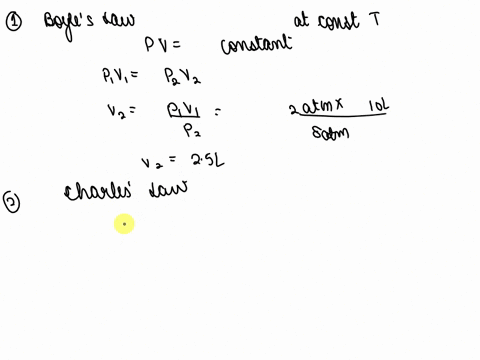 ① Boyle's Law at const T
PV = constant
P₁V₁ = P₂V₂
V₂ = P₁V₁/P₂ = 2 atm × 10L / 8 atm
V₂ = 2.5L
② Charles' Law